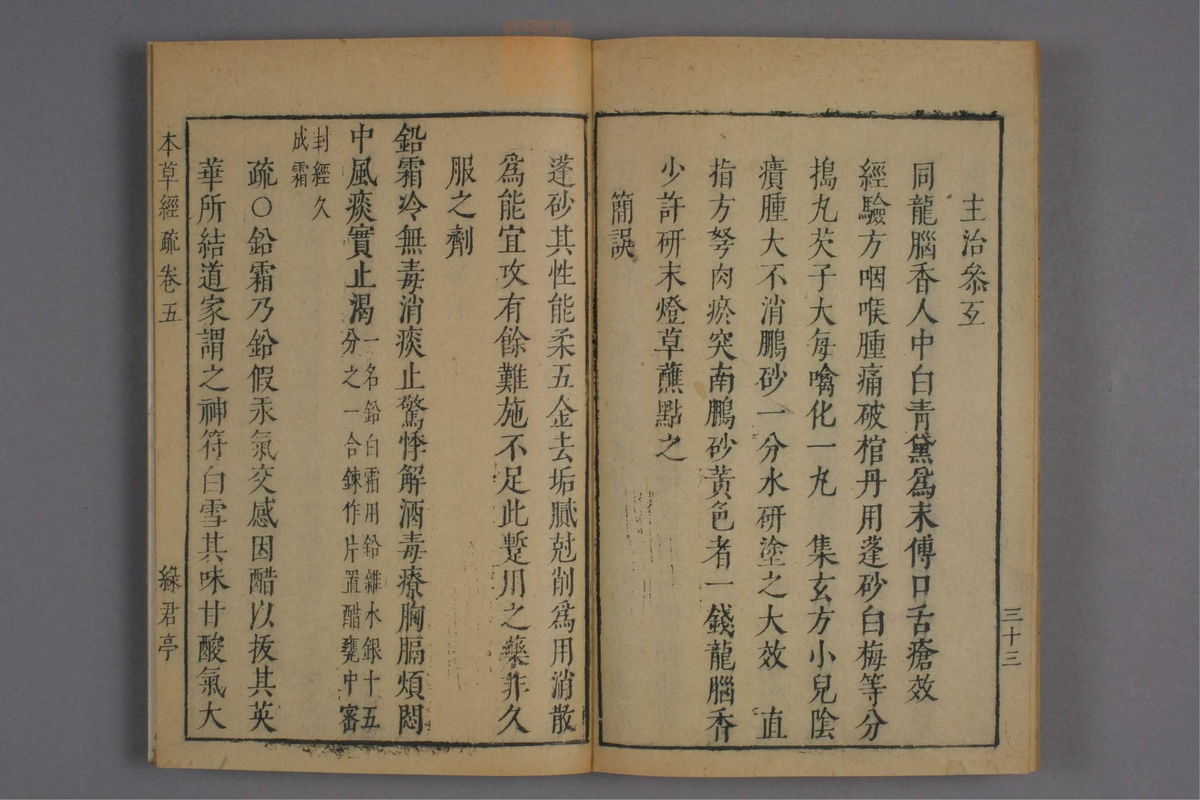 主治參互
同龍腦香人中白青黛爲末傅口舌瘡效
經驗方咽喉腫痛破棺丹用蓬砂白梅等分
搗丸芡子大每噙化一丸　集玄方小兒陰
㿗腫大不消鵬砂一分水研塗之大效　直
指方弩肉瘀突南鵬砂黃色者一錢龍腦香
少許研末燈草蘸點之
簡誤
三十三
蓬砂其性能柔五金去垢膩尅削爲用消散
爲能宜攻有餘難施不足此蹔用之藥非久
服之劑
鉛霜冷無毒消痰止驚悸解酒毒療胸膈煩悶
中風痰實止渴一名鉛白霜用鉛雜水銀十五
分之一合鍊作片置醋甕中密
封經久
成霜
疏○鉛霜乃鉛假汞氣交感因醋以拔其英
華所結道家謂之神符白雪其味甘酸氣大
本草經疏卷五
綠君亭